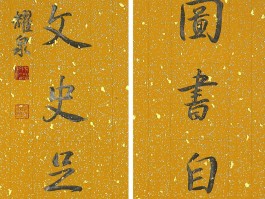 圖書自
文史足
耀泉